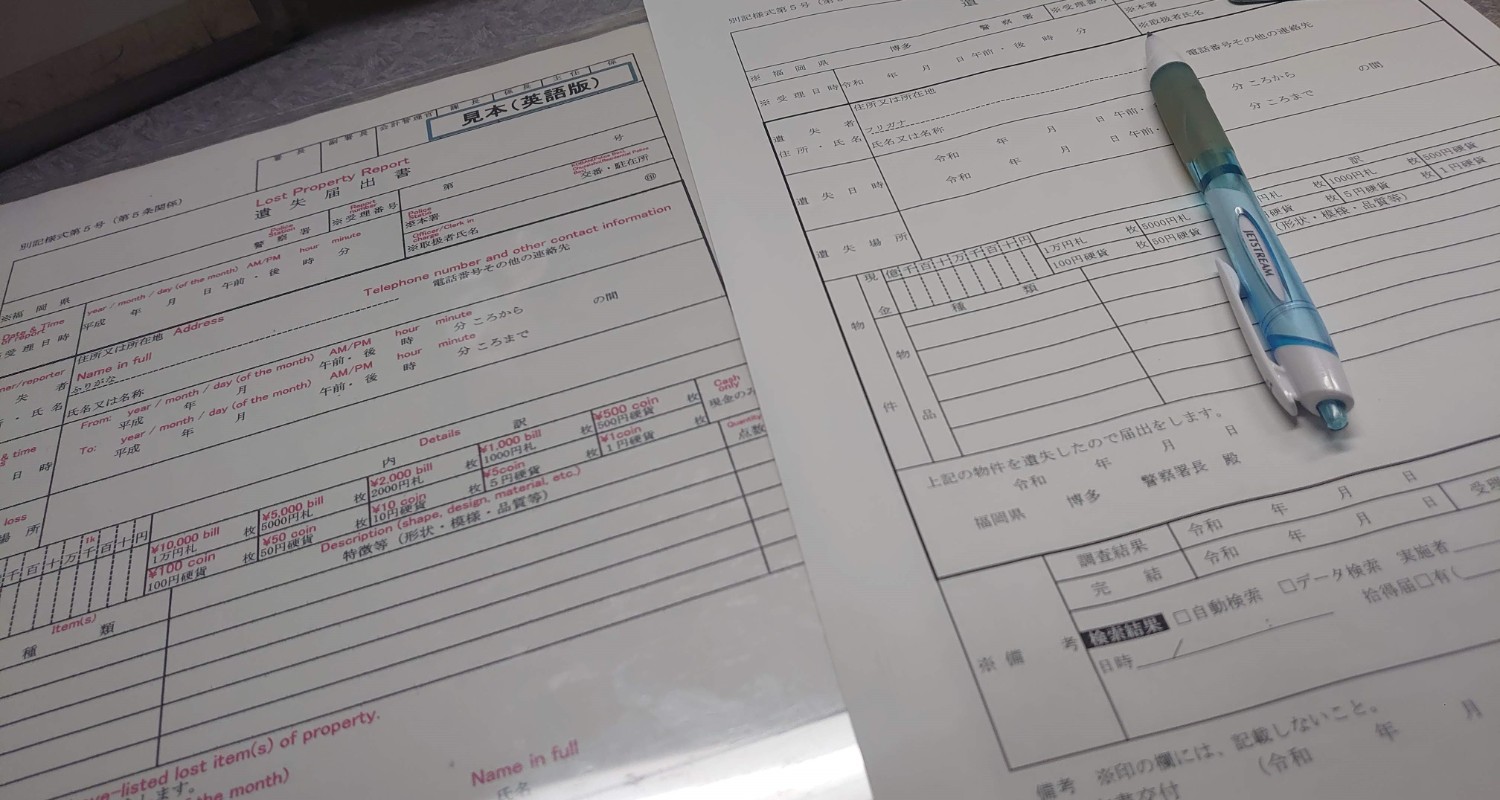 別記様式第５号（第５条関係）
署 長
副 署 長
会計管理官
課 長
係 長
主 任
係
見本（英語版）
Lost Property Report
遺 失 届 出 書
※福 岡 県
Police Station
警 察 署
Report number
※受理番号
第
号
Police Station
※本署
交番・駐在所
Officer/Clerk in charge
※取扱者氏名
㊞
Date & Time of report
※受理日時
year / month / day (of the month) AM/PM hour minute
平成 年 月 日 午前・後 時 分
Telephone number and other contact information
住所又は所在地 Address
電話番号その他の連絡先
ner/reporter
失 者
・氏 名
Name in full
ふりがな
氏名又は名称
& time
日 時
From: year / month / day (of the month) AM/PM hour minute
平成 年 月 午前・後 時 分 ころから
の間
To: year / month / day (of the month) AM/PM hour minute
平成 年 月 午前・後 時 分 ころまで
loss
場 所
Details
内 訳
千 百 十 万 千 百 十 円
1k
¥10,000 bill
1万円札 枚
¥5,000 bill
5000円札 枚
¥2,000 bill
2000円札 枚
¥1,000 bill
1000円札 枚
¥500 coin
500円硬貨 枚
Cash only
現金のみ
¥100 coin
100円硬貨 枚
¥50 coin
50円硬貨 枚
¥10 coin
10円硬貨 枚
¥5coin
５円硬貨 枚
¥1coin
１円硬貨 枚
Quantity
点数
Item(s)
種 類
Description (shape, design, material, etc.)
特徴等（形状・模様・品質等）
ve-listed lost item(s) of property.
します。
f the month)
Name in full
氏名
別記様式第５号（第
遺
※ 福 岡 県
博多 警 察 署
※受理番号
※本署
※取扱者氏名
※ 受 理 日 時
令和 年 月 日 午前・後 時 分
遺 失 者
住 所・氏 名
住所又は所在地
電話番号その他の連絡先
フリガナ
氏名又は名称
遺 失 日 時
令和 年 月 日 午前・
分 ころから
の間
令和 年 月 日 午前・
分 ころまで
遺 失 場 所
訳
物 件
現 金
億 千 百 十 万 千 百 十 円
1万円札 枚
5000円札 枚
円札 枚
1000円札 枚
500円硬貨
100円硬貨 枚
50円硬貨 枚
硬貨 枚
５円硬貨 枚
１円硬貨
物 品
種 類
（形状・模様・品質等）
JETSTREAM
上記の物件を遺失したので届出をします。
令和 年 月 日
福岡県 博多 警察署長 殿
※ 備 考
調査結果
令和 年 月 日
受理
完 結
令和 年 月 日
検索結果
□自動検索 □データ検索 実施者
日時 / :
拾得届□有（
備考 ※印の欄には、記載しないこと。
（令和 年 月